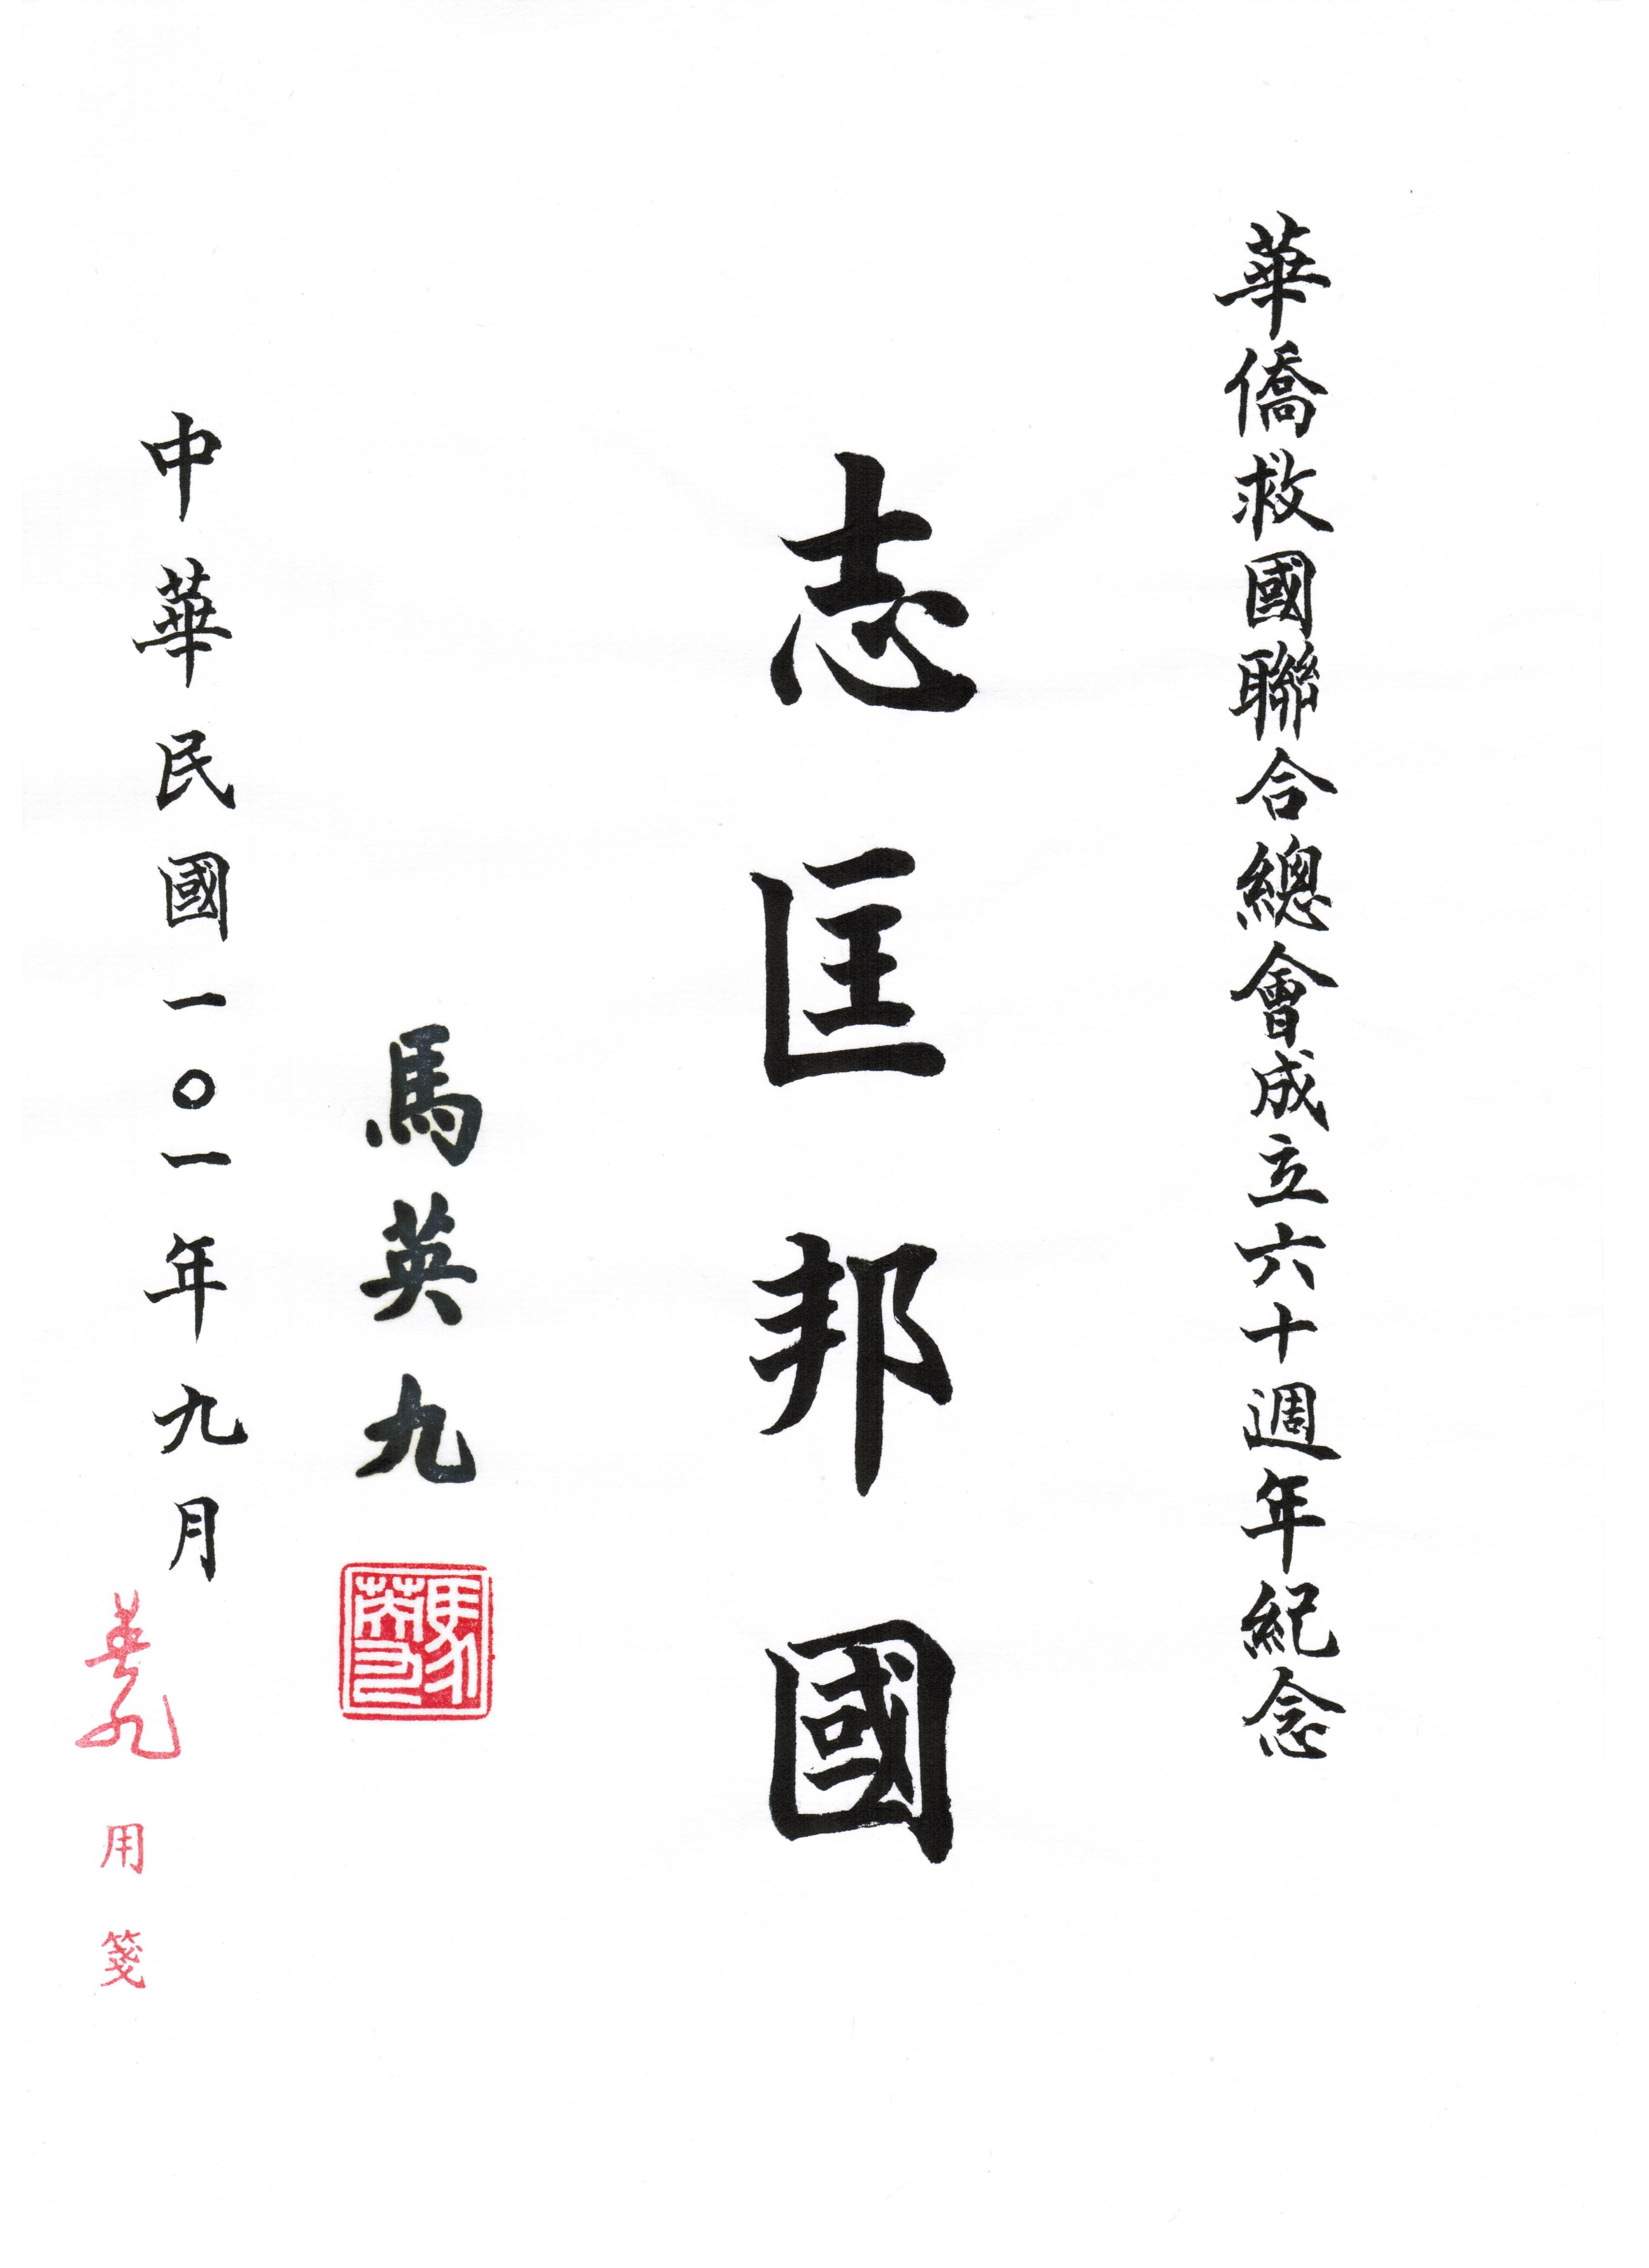 華僑救國聯合總會成立六十週年紀念
志匡邦國
馬英九
馬英九
中華民國一〇一年九月
英九用箋